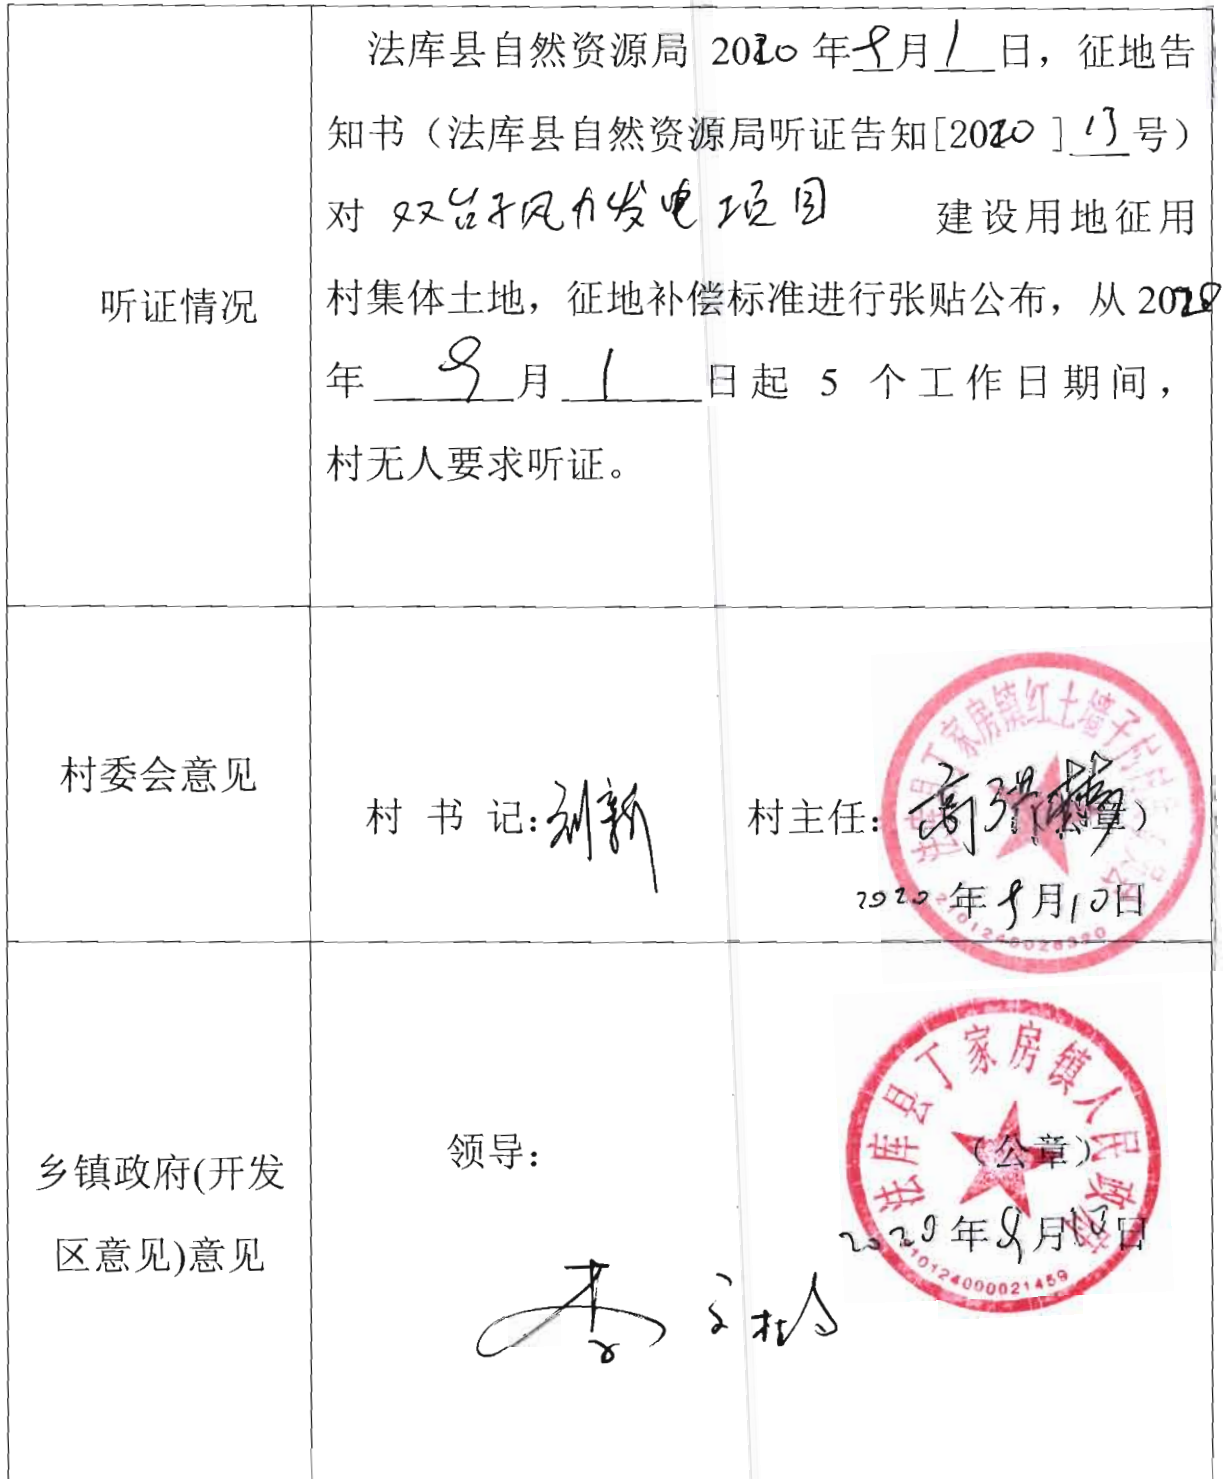 听证情况
法库县自然资源局 2020 年 9 月 1 日，征地告
知书（法库县自然资源局听证告知[2020 ] 13 号）
对 双台子风力发电项目 建设用地征用
村集体土地，征地补偿标准进行张贴公布，从 2020
年 9 月 1 日起 5 个工作日期间，
村无人要求听证。
村委会意见
村 书 记: 刘新
村主任: 高洪 章）
2020 年 9 月 10 日
法库县丁家房镇红土墙子村
乡镇政府(开发
区意见)意见
领导:
李文
（公章）
2020 年 9 月 10 日
法库县丁家房镇人民政府
2101240000021459